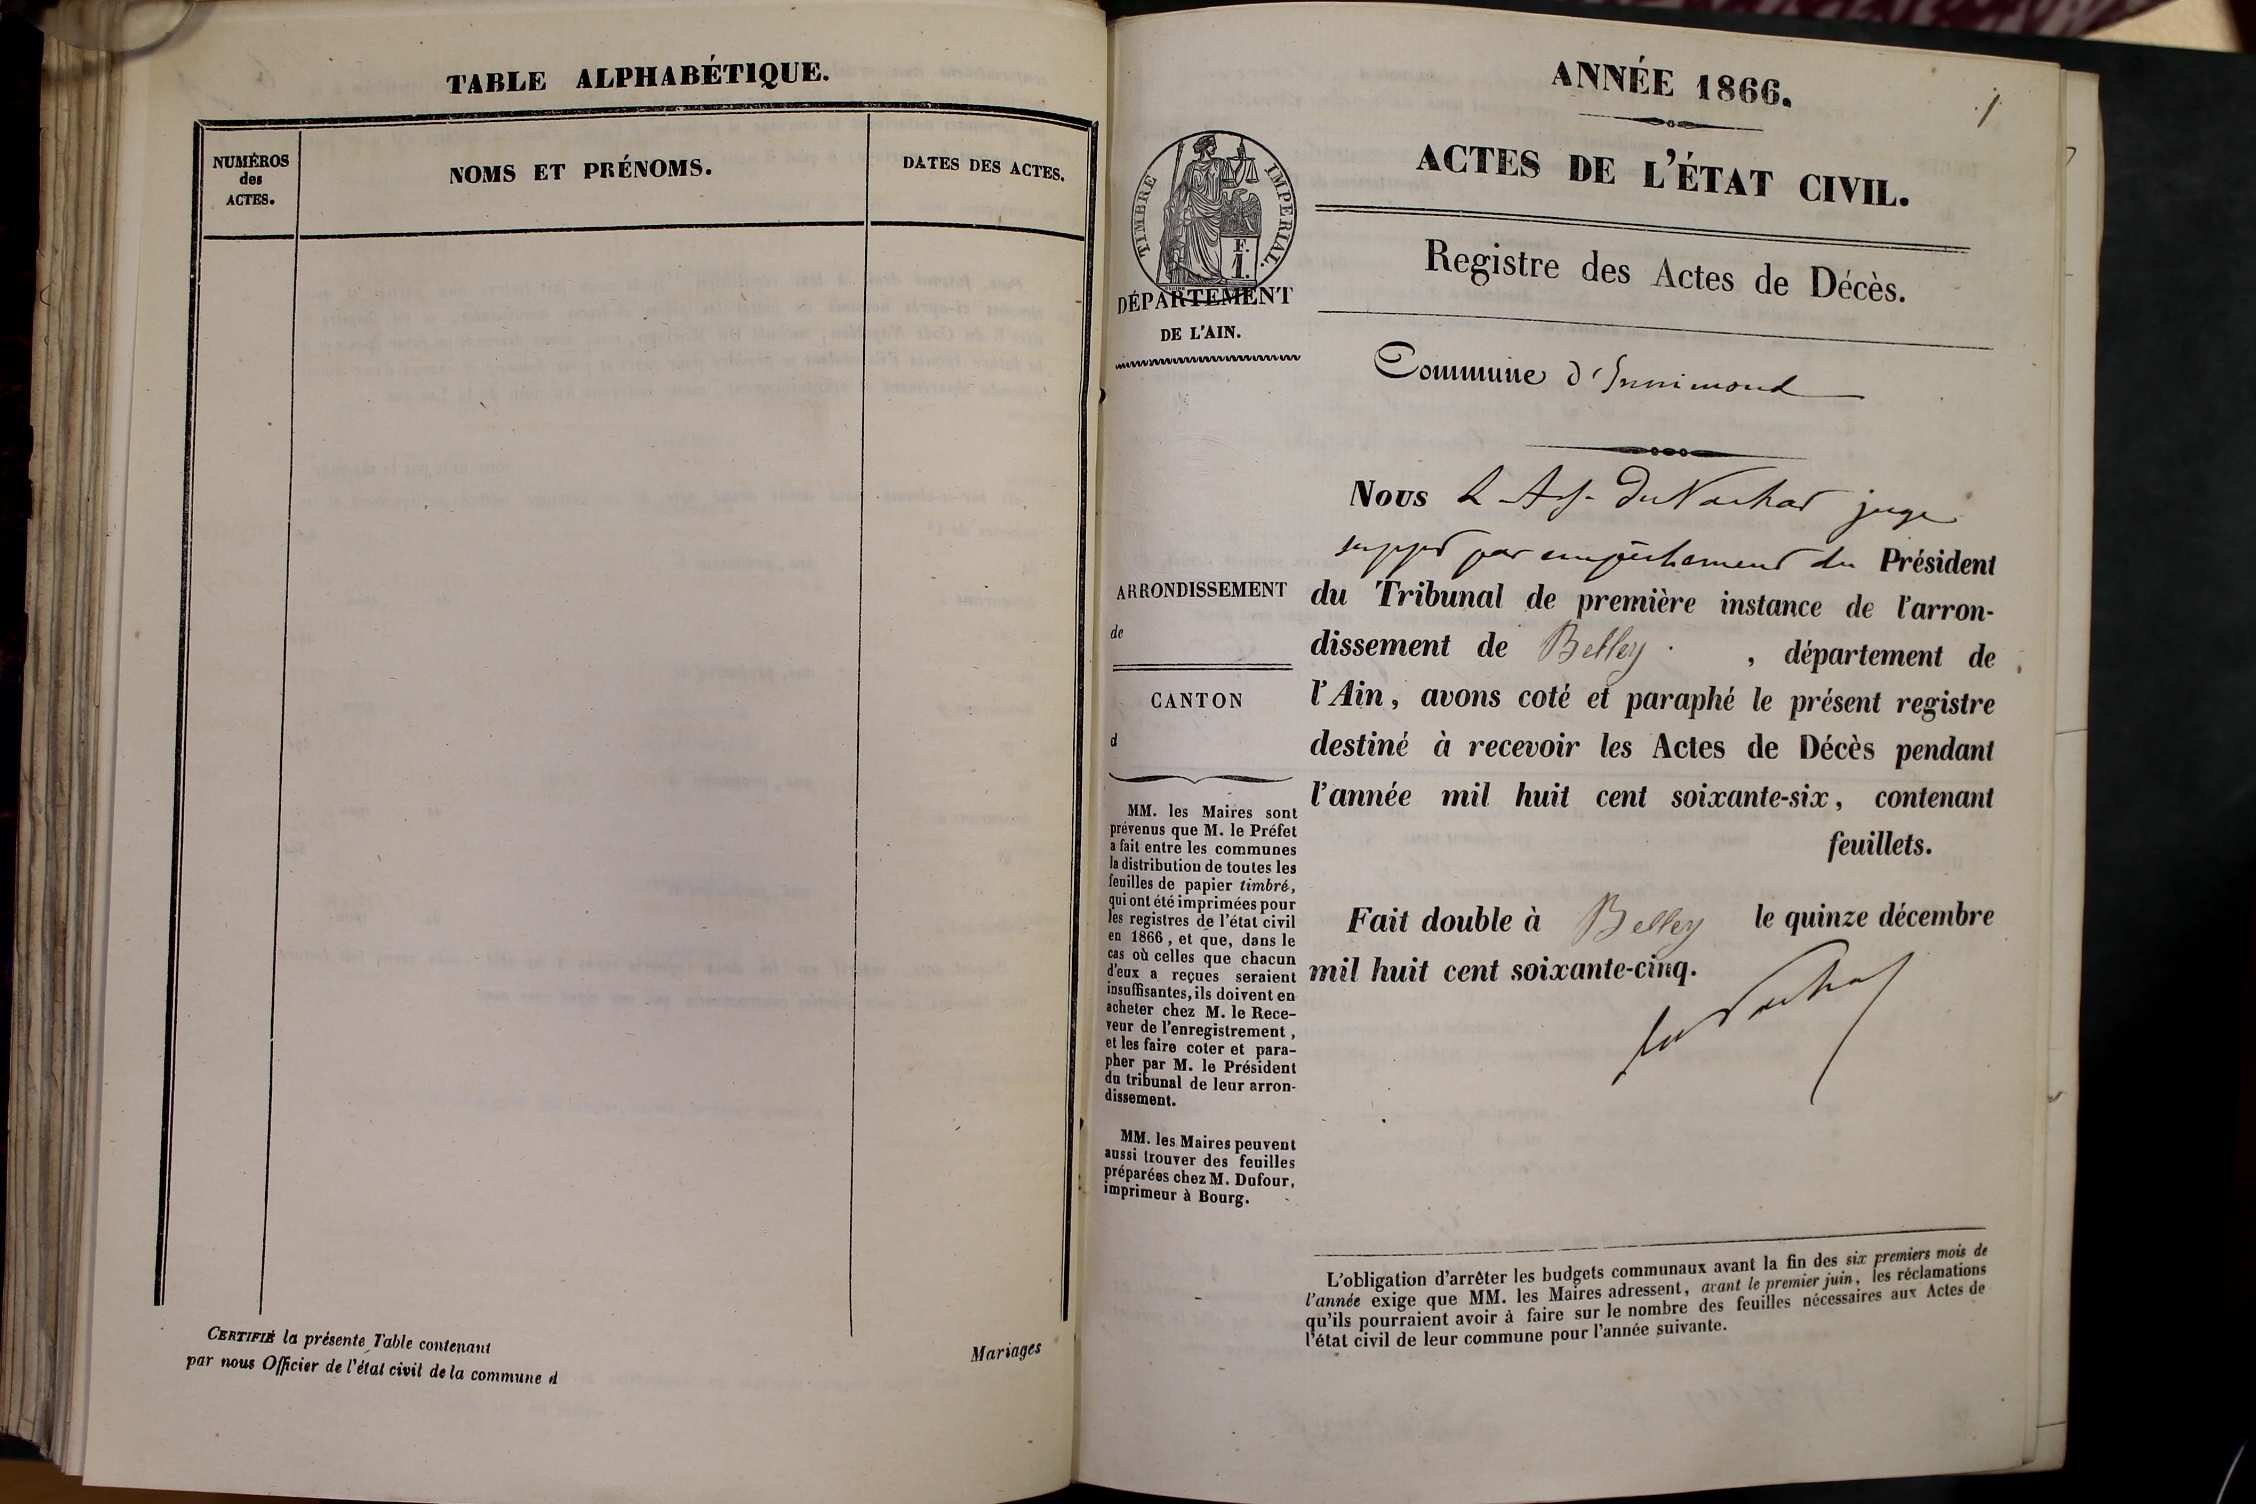 TABLE ALPHABÉTIQUE.
NUMÉROS
des
ACTES.
NOMS ET PRÉNOMS.
DATES DES ACTES.
CERTIFIÉ la présente Table contenant
Mariages
par nous Officier de l'état civil de la commune d
1
ANNÉE 1866.
ACTES DE L'ÉTAT CIVIL.
Registre des Actes de Décès.
TIMBRE IMPERIAL.
F.
1.
DÉPARTEMENT
DE L'AIN.
ARRONDISSEMENT
de
CANTON
d
MM. les Maires sont
prévenus que M. le Préfet
a fait entre les communes
la distribution de toutes les
feuilles de papier timbré,
qui ont été imprimées pour
les registres de l'état civil
en 1866, et que, dans le
cas où celles que chacun
d'eux a reçues seraient
insuffisantes, ils doivent en
acheter chez M. le Rece-
veur de l'enregistrement,
et les faire coter et para-
pher par M. le Président
du tribunal de leur arron-
dissement.
MM. les Maires peuvent
aussi trouver des feuilles
préparées chez M. Dufour,
imprimeur à Bourg.
Commune d'Innimond
Nous juge
par empêchement du Président
du Tribunal de première instance de l'arron-
dissement de Belley , département de
l'Ain, avons coté et paraphé le présent registre
destiné à recevoir les Actes de Décès pendant
l'année mil huit cent soixante-six, contenant
feuillets.
Fait double à Belley le quinze décembre
mil huit cent soixante-cinq.
L'obligation d'arrêter les budgets communaux avant la fin des six premiers mois de
l'année exige que MM. les Maires adressent, avant le premier juin, les réclamations
qu'ils pourraient avoir à faire sur le nombre des feuilles nécessaires aux Actes de
l'état civil de leur commune pour l'année suivante.